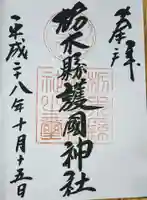 奉拝
栃木縣護國神社
平成二十八年十月十五日